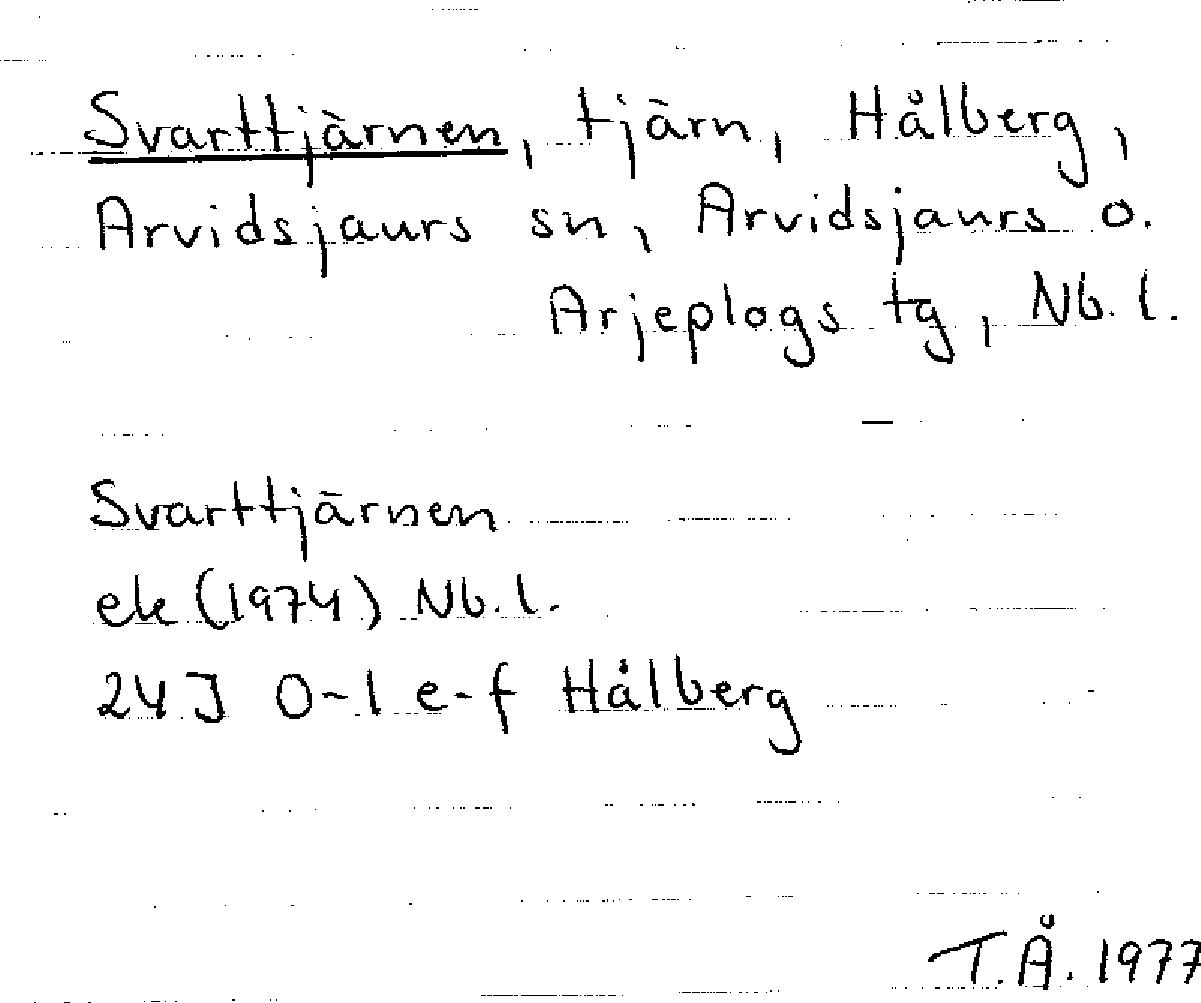 Svarttjärnen, tjärn, Hålberg,
Arvidsjaurs sn, Arvidsjaurs o.
Arjeplogs tg, Nb. l.
Svarttjärnen
ek (1974) Nb. l.
24 J 0-1 e-f Hålberg
T.Å. 1977